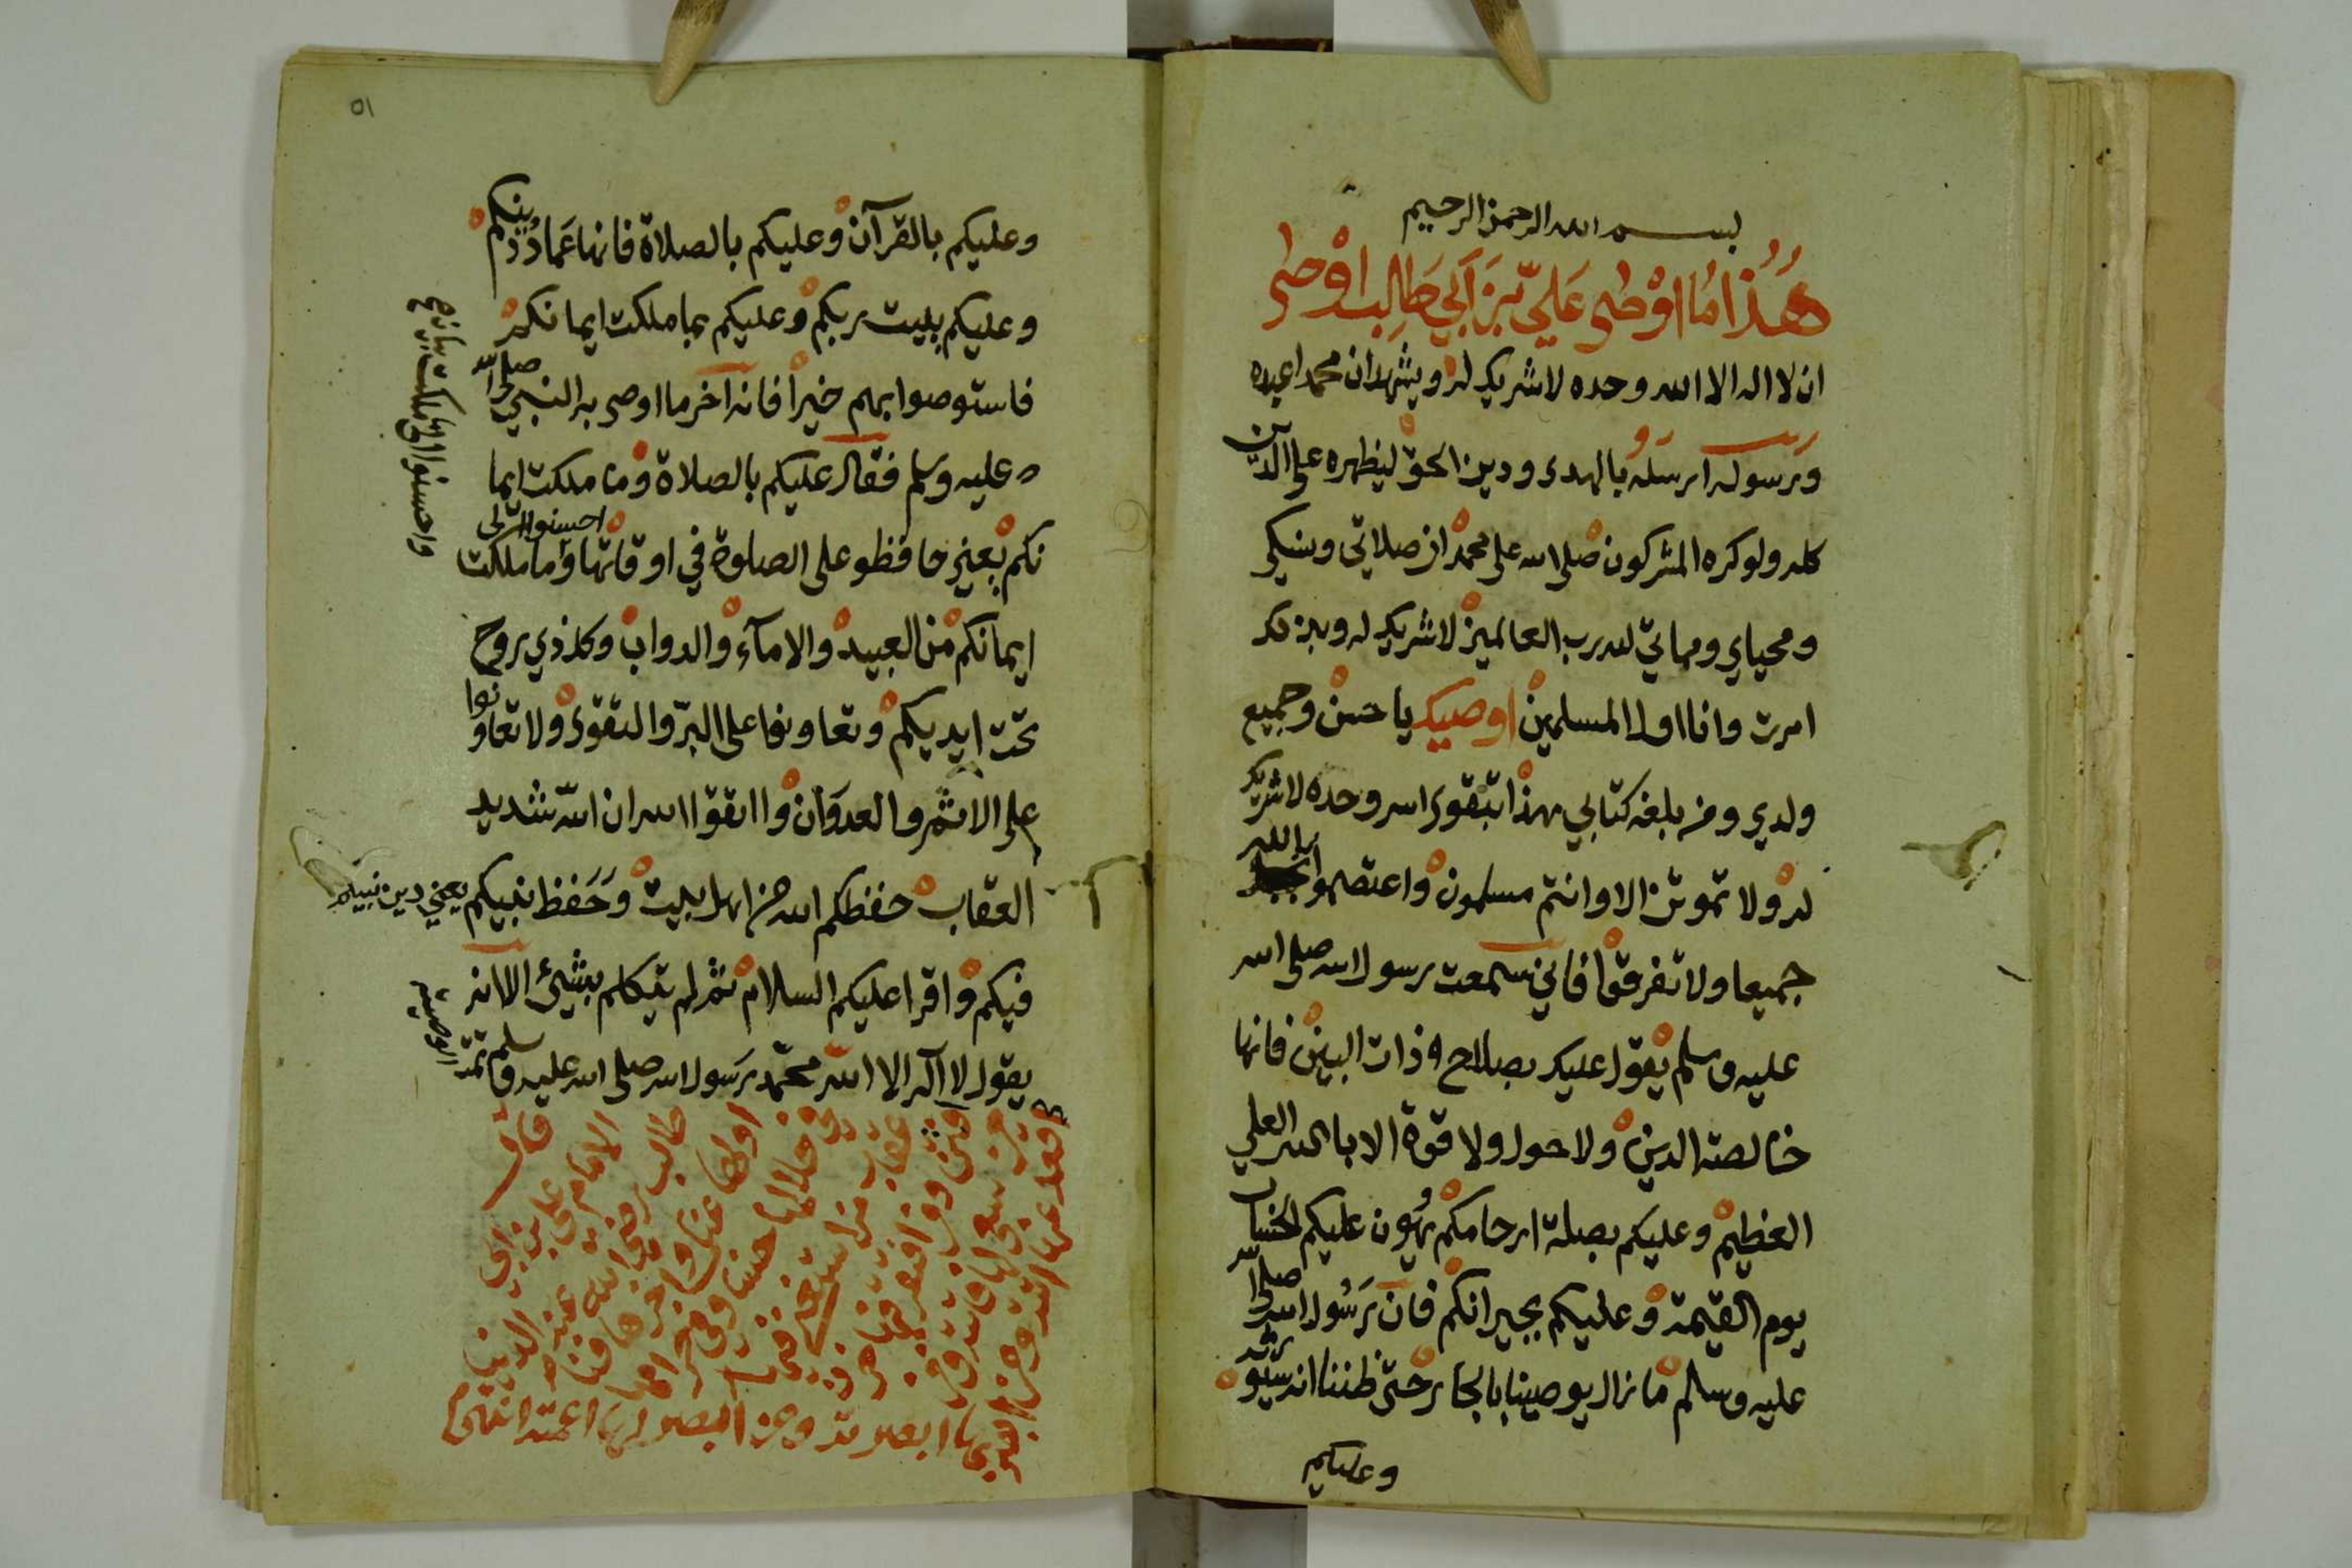 بسم الله الرحمن الرحيم
هذا ما اوصى علي بن ابي طالب اوصى
ان لا اله الا الله وحده لا شريك له ويشهد ان محمدا عبده
ورسوله ارسله بالهدى ودين الحق ليظهره على الدين
كله ولو كره المشركون صلى الله على محمد ان صلاتي ونسكي
ومحياي ومماتي لله رب العالمين لا شريك له وبذلك
امرت وانا اول المسلمين اوصيك يا حسن وجميع
ولدي ومن بلغه كتابي بهذا بتقوى الله وحده لا شريك
له ولا تموتن الا وانتم مسلمون واعتصموا بالله
جميعا ولا تفرقوا فاني سمعت رسول الله صلى الله
عليه وسلم يقول عليك بصلاح ذات البين فانها
خالصة الدين ولا حول ولا قوة الا بالله العلي
العظيم وعليكم بصلة ارحامكم يهون عليكم الحساب
يوم القيمة وعليكم بجيرانكم فان رسول الله صلى الله
عليه وسلم ما زال يوصينا بالجار حتى ظننا انه سيورثه
وعليكم
٥١
وعليكم بالقرآن وعليكم بالصلاة فانها عماد دينكم
وعليكم ببيت ربكم وعليكم بما ملكت ايمانكم
فاستوصوا بهم خيرا فانه آخر ما اوصى به النبي صلى الله
عليه وسلم فقال عليكم بالصلاة وما ملكت ايما
نكم يعني حافظو على الصلوة في اوقاتها وما ملكت
احسنوا الى
ايمانكم من العبيد والامآء والدواب وكل ذي روح
تحت ايديكم وتعاونوا على البرّ والتقوى ولا تعاونوا
على الاثم والعدوان واتقوا الله ان الله شديد
العقاب حفظكم الله من اهل بيت وحفظ نبيكم يعني دين نبيكم
فيكم واقرا عليكم السلام ثم لم يتكلم بشيئ الا انه
يقول لا آله الا الله محمّد رسول الله صلى الله عليه وسلم تمة
الوصية
واحسنوا الى ما ملكت
قال
الامام علي بن ابي
طالب رضي الله عنه الدنيا
اولها عناء واخرها فناء
حلالها حساب وفي حرامها
عقاب من استغنى فيها
فتن ومن افتقر فيها حزن
ومن سعى لها فاتته ومن
قعد عنها اتته ومن ابصر
بها ابصرته ومن ابصر لها اعمته انتهى